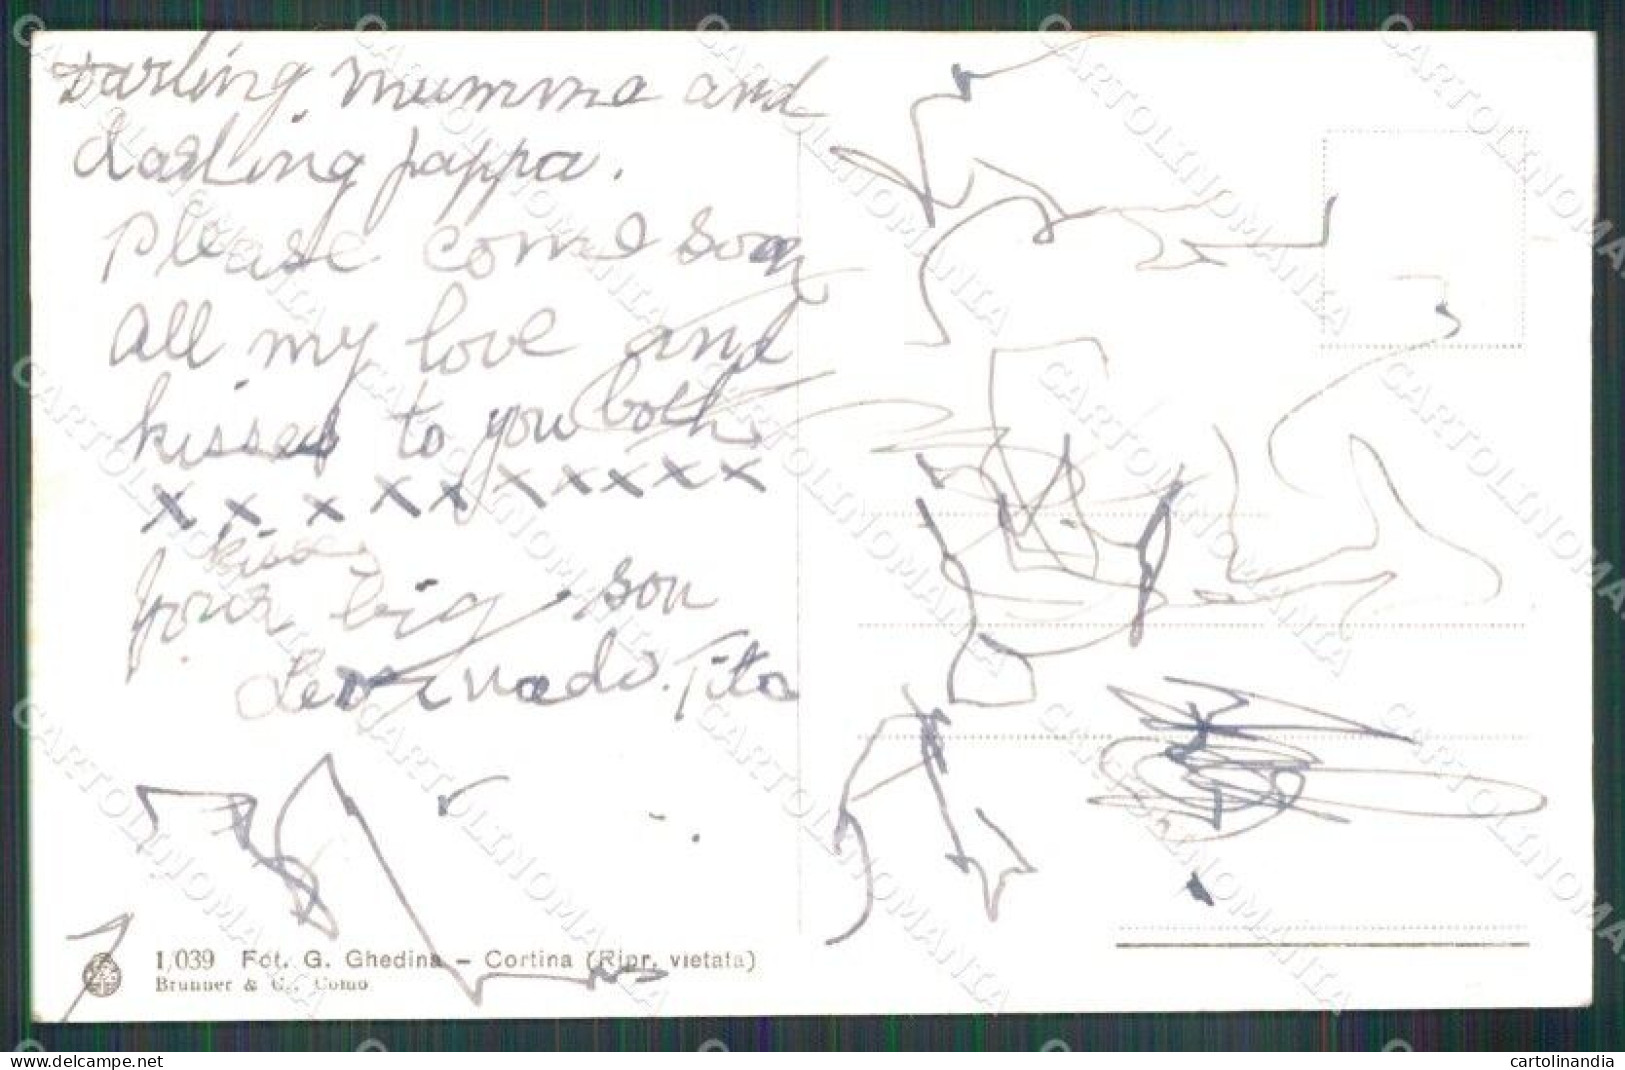 Darling mumma and
darling pappa.
please come soon
all my love and
kisses to you both
x x x x x x x x x x
kisses
your big son
Tito
1,039 Fot. G. Ghedina – Cortina (Ripr. vietata)
Brunner & C., Como
CARTOLINOMANIA
cartolinandia
delcampe.net